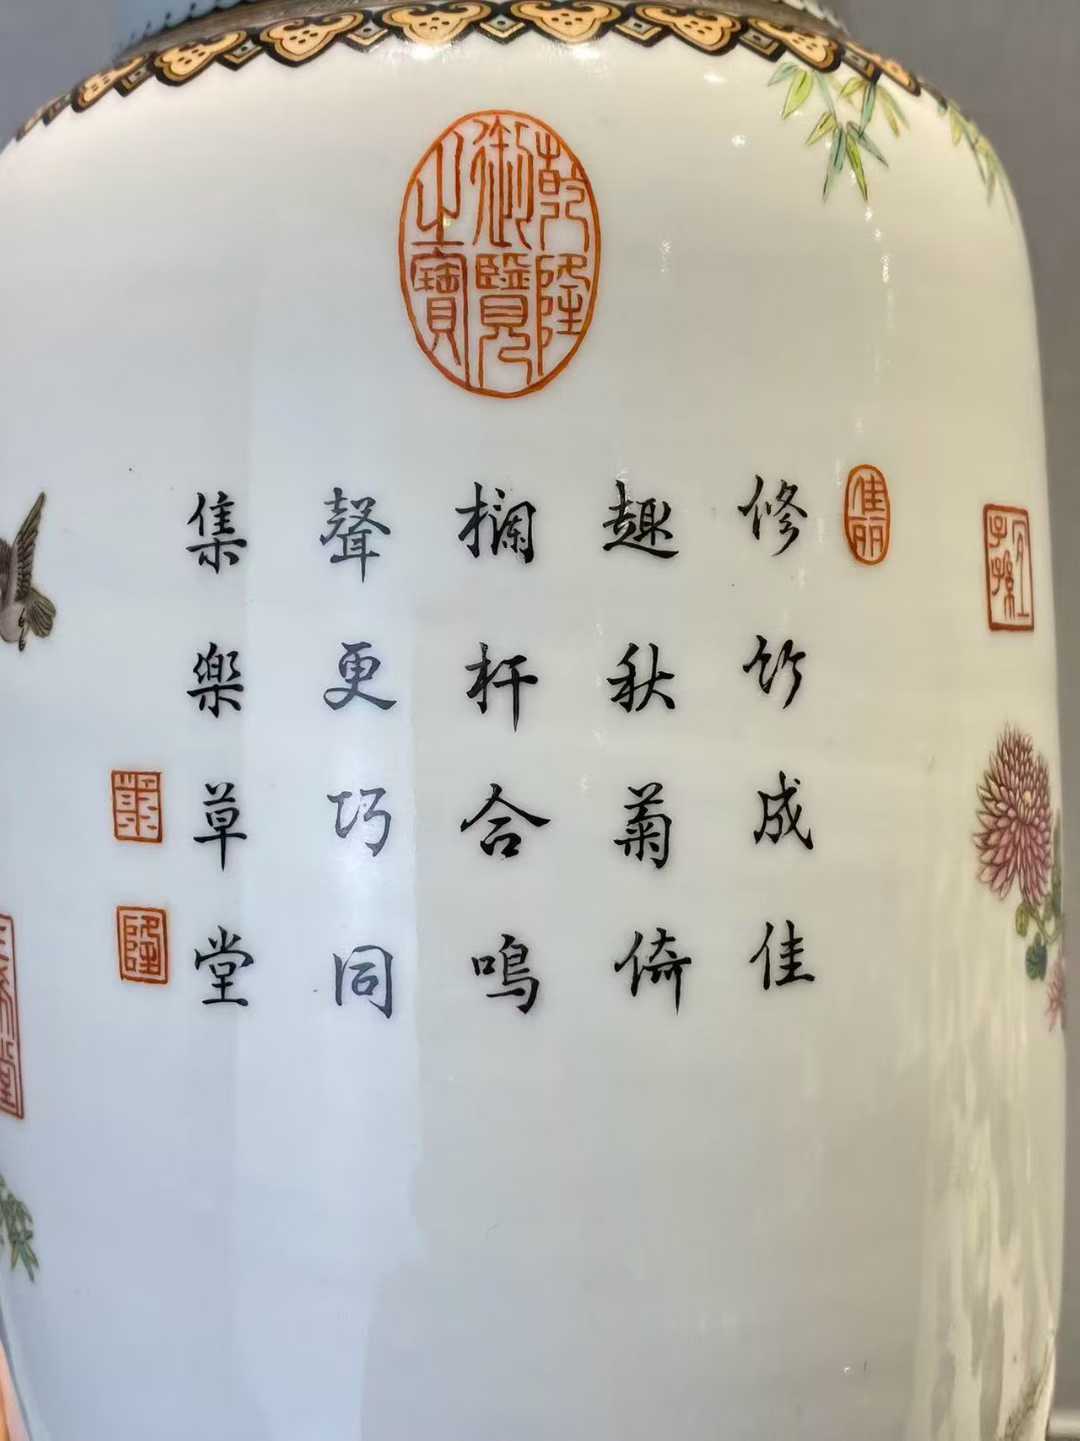 乾隆
御覽
之寶
佳丽
修竹成佳
趣秋菊倚
欄杆合鳴
聲更巧同
集樂草堂
隆